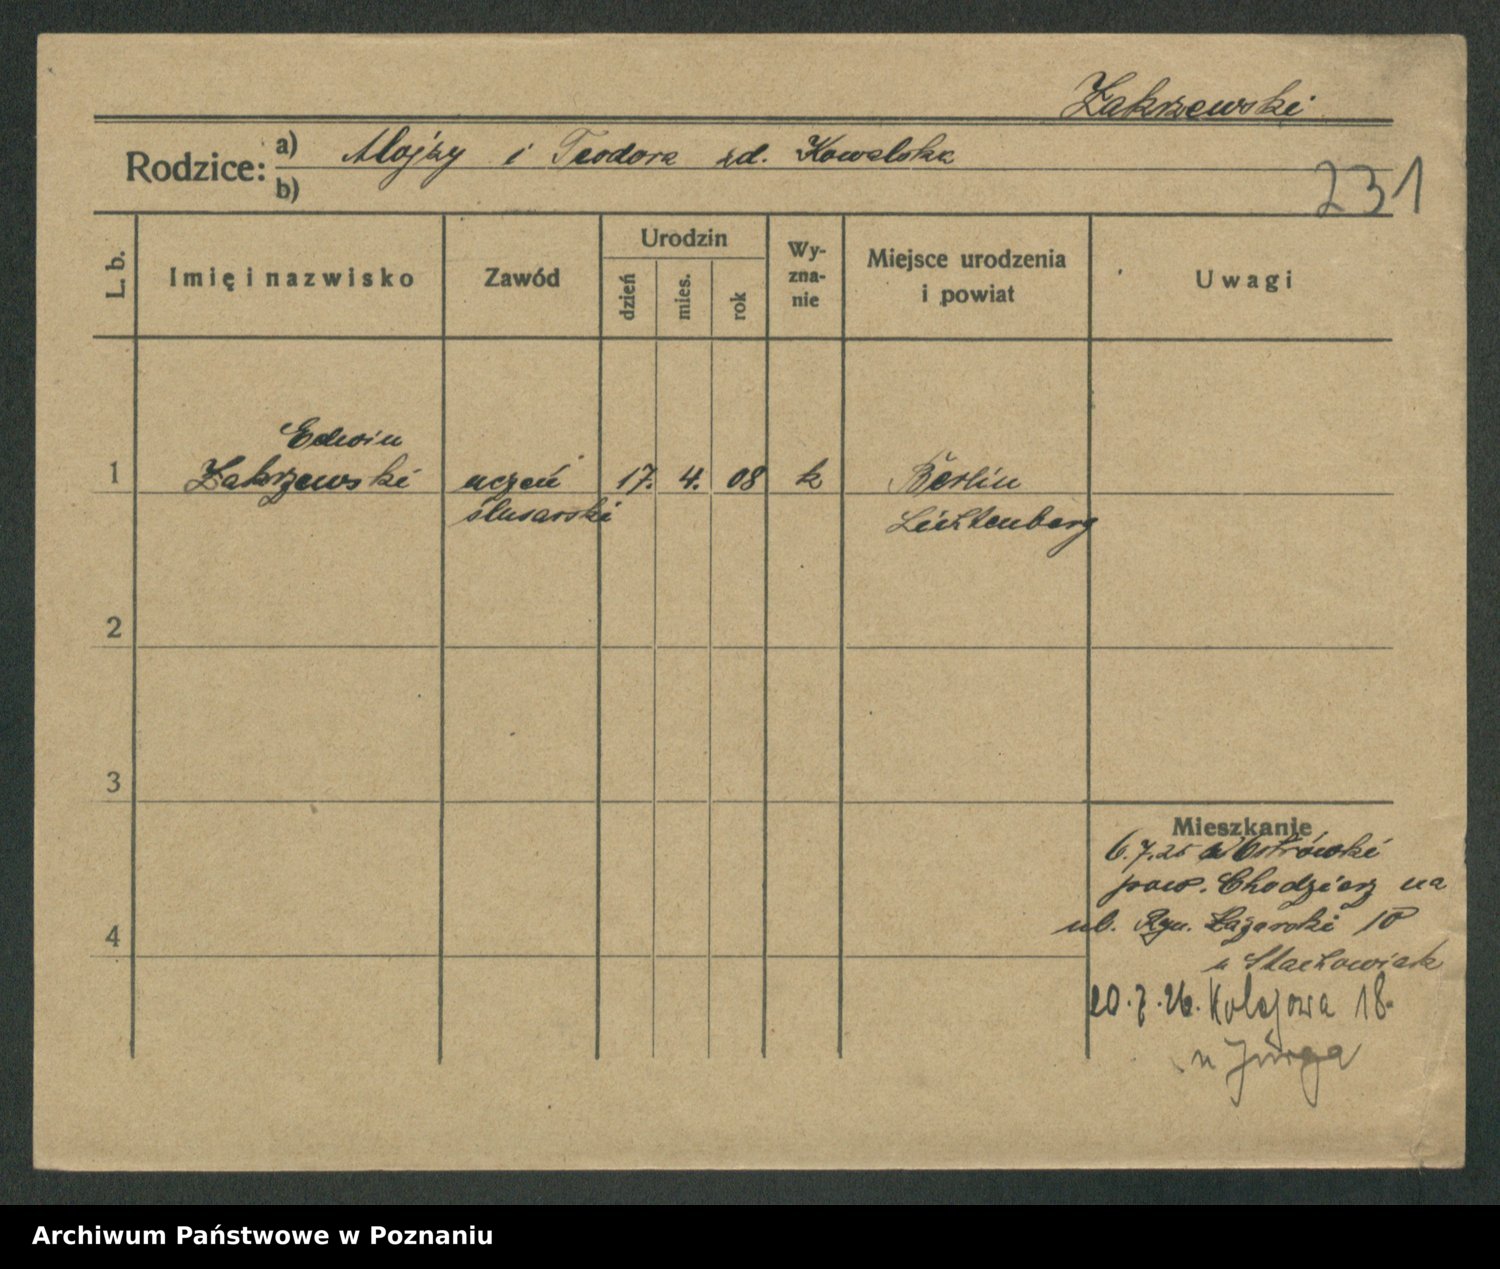 Zakrzewski
Rodzice: a) Alojzy i Teodora zd. Kowalska
b)
231
L. b.
Imię i nazwisko
Zawód
Urodzin
dzień
mies.
rok
Wy-
zna-
nie
Miejsce urodzenia
i powiat
Uwagi
Edwin
1 Zakrzewski uczeń 17. 4. 08 k Berlin
ślusarski Lichtenberg
2
3
Mieszkanie
6.7.25 Ostrówki
pow. Chodzież na
ul. Ryn. Łazarski 10
4
u Stachowiak
20.7.26. Kolejowa 18.
u Jurga
Archiwum Państwowe w Poznaniu